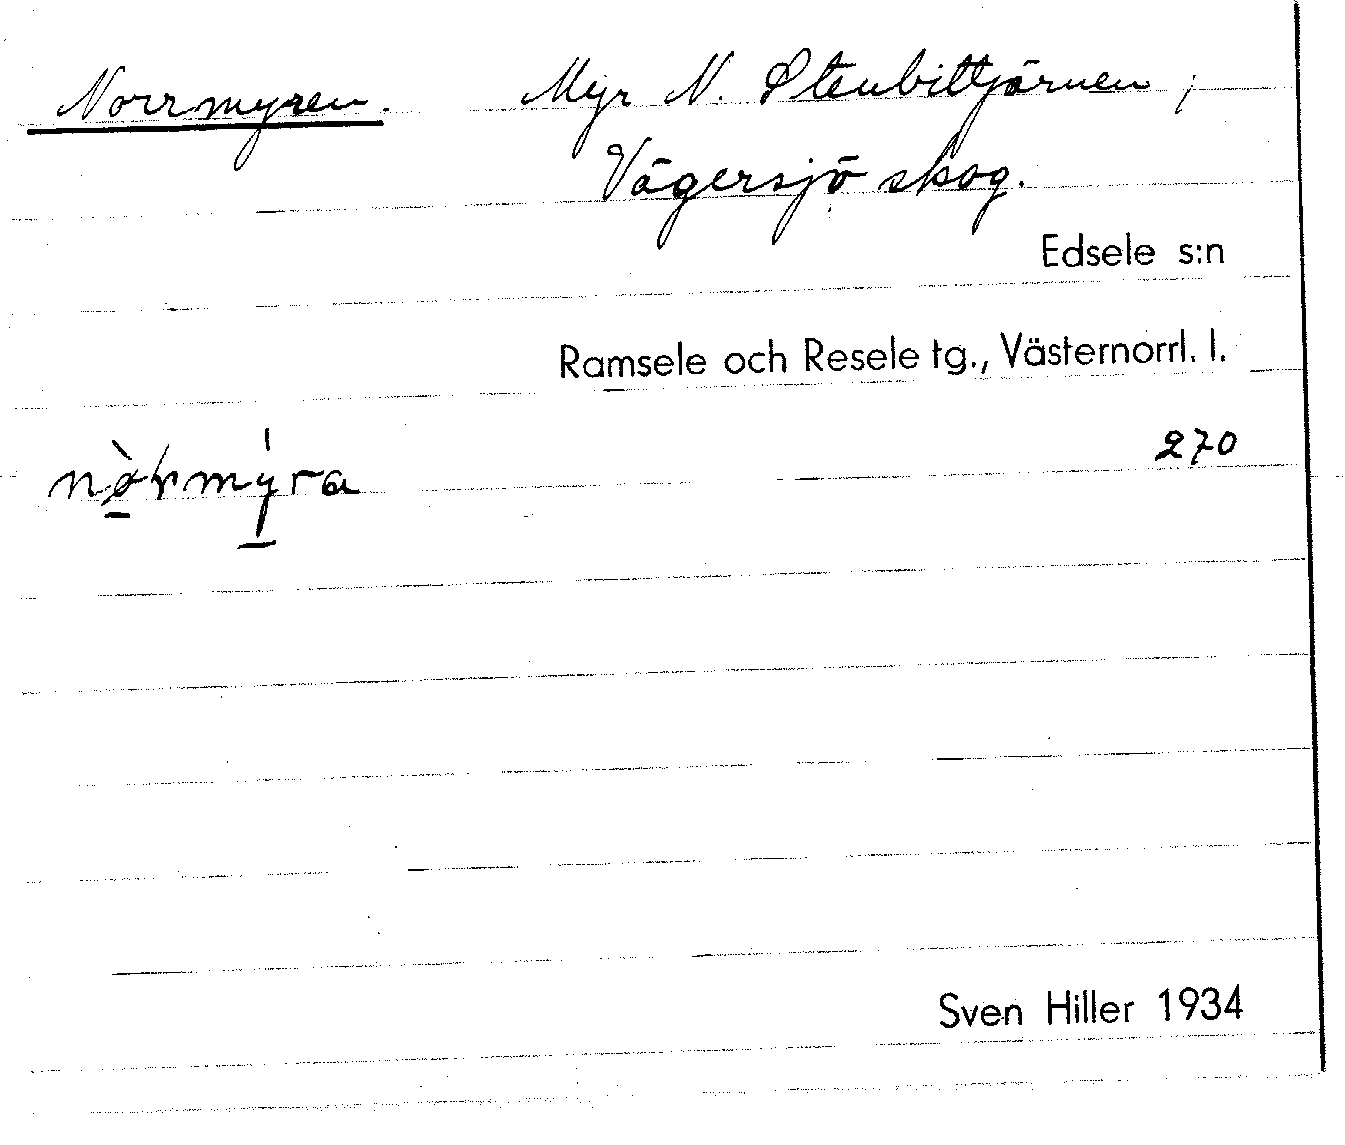 Norrmyren. Myr N. Stenbittjärnen;
Vägersjö skog.
Edsele s:n
Ramsele och Resele tg., Västernorrl. l.
270
nòrmýra
Sven Hiller 1934